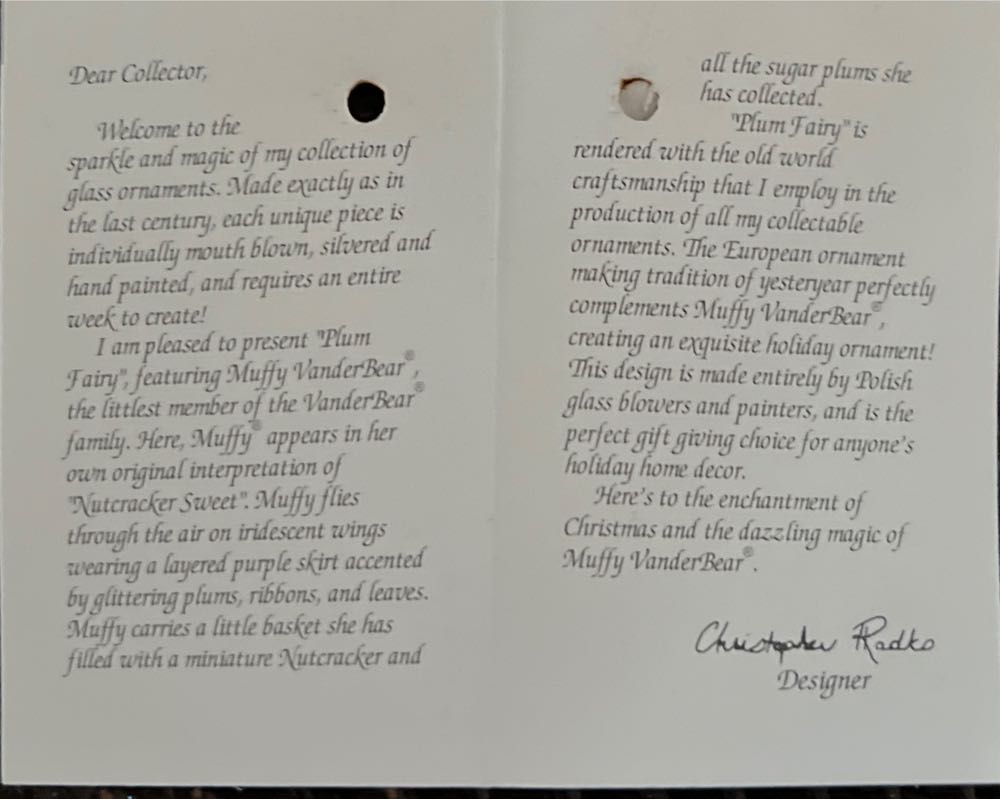 Dear Collector,
Welcome to the
sparkle and magic of my collection of
glass ornaments. Made exactly as in
the last century, each unique piece is
individually mouth blown, silvered and
hand painted, and requires an entire
week to create!
I am pleased to present "Plum
Fairy", featuring Muffy VanderBear®,
the littlest member of the VanderBear®
family. Here, Muffy® appears in her
own original interpretation of
"Nutcracker Sweet". Muffy flies
through the air on iridescent wings
wearing a layered purple skirt accented
by glittering plums, ribbons, and leaves.
Muffy carries a little basket she has
filled with a miniature Nutcracker and
all the sugar plums she
has collected.
"Plum Fairy" is
rendered with the old world
craftsmanship that I employ in the
production of all my collectable
ornaments. The European ornament
making tradition of yesteryear perfectly
complements Muffy VanderBear®,
creating an exquisite holiday ornament!
This design is made entirely by Polish
glass blowers and painters, and is the
perfect gift giving choice for anyone's
holiday home decor.
Here's to the enchantment of
Christmas and the dazzling magic of
Muffy VanderBear®.
Christopher Radko
Designer